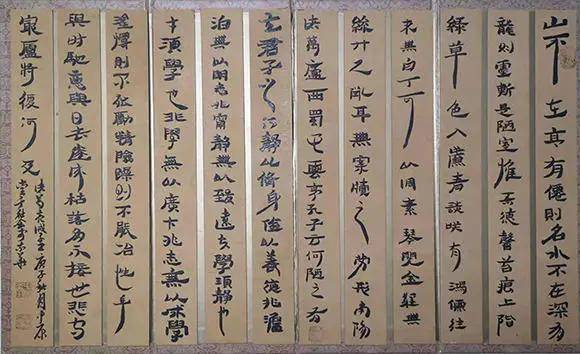 山不在高有僊則名水不在深有
龍則靈斯是陋室惟吾德馨苔痕上階
綠草色入簾青談咲有鴻儒往
來無白丁可以調素琴閱金經無
絲竹之亂耳無案牘之勞形南陽
諸葛廬西蜀子雲亭孔子云何陋之有
夫君子之行靜以脩身儉以養德非澹
泊無以明志非甯靜無以致遠夫學須靜也
才須學也非學無以廣才非志無以成學
淫慢則不能勵精險躁則不能冶性年
與時馳意與日去遂成枯落多不接世悲守
窮廬將復何及
庚子秋月